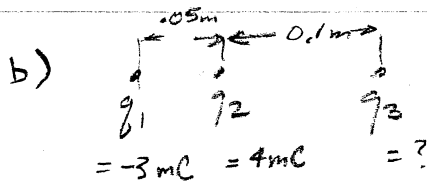 .05m
0.1m
b)
q1 q2 q3
= -3 mC = 4 mC = ?